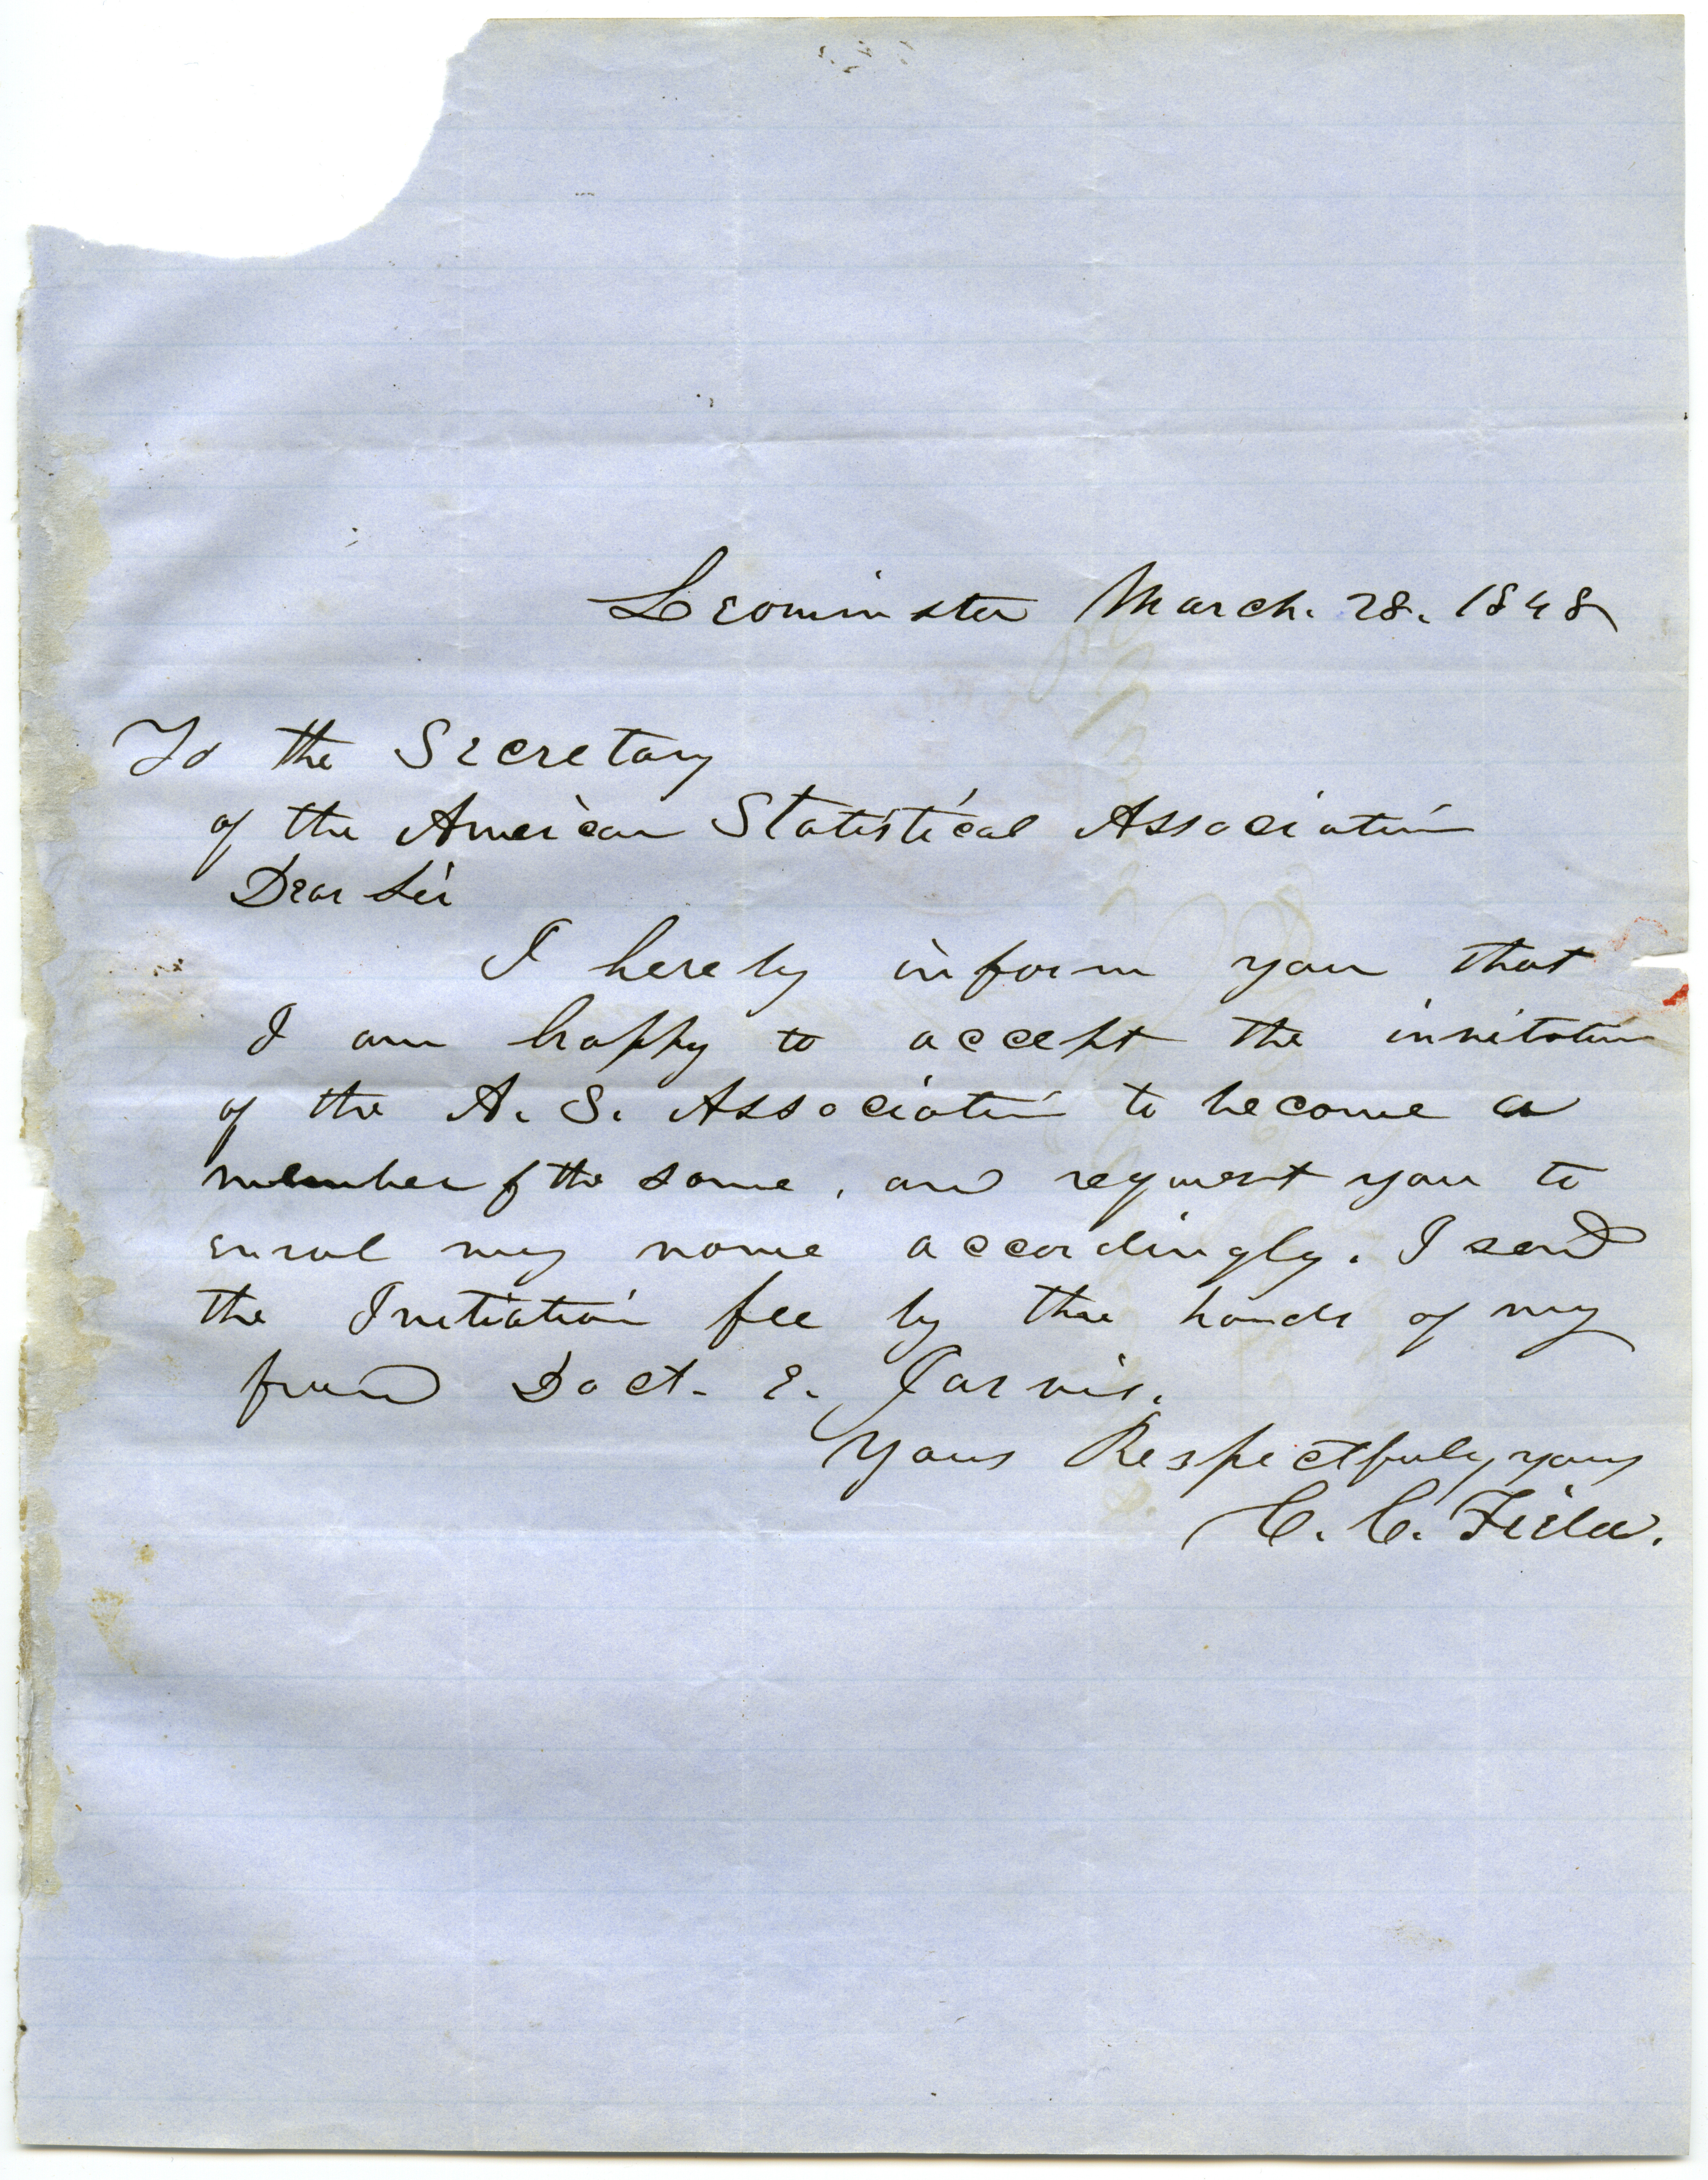 Leominster March. 28. 1848
To the Secretary
of the American Statistical Association
Dear Sir
I hereby inform you that
I am happy to accept the invitation
of the A. S. Association to become a
member of the same, and request you to
enrol my name accordingly. I send
the Initiation fee by the hands of my
friend Doct. E. Jarvis.
Yours Respectfuly yours
C. C. Field.